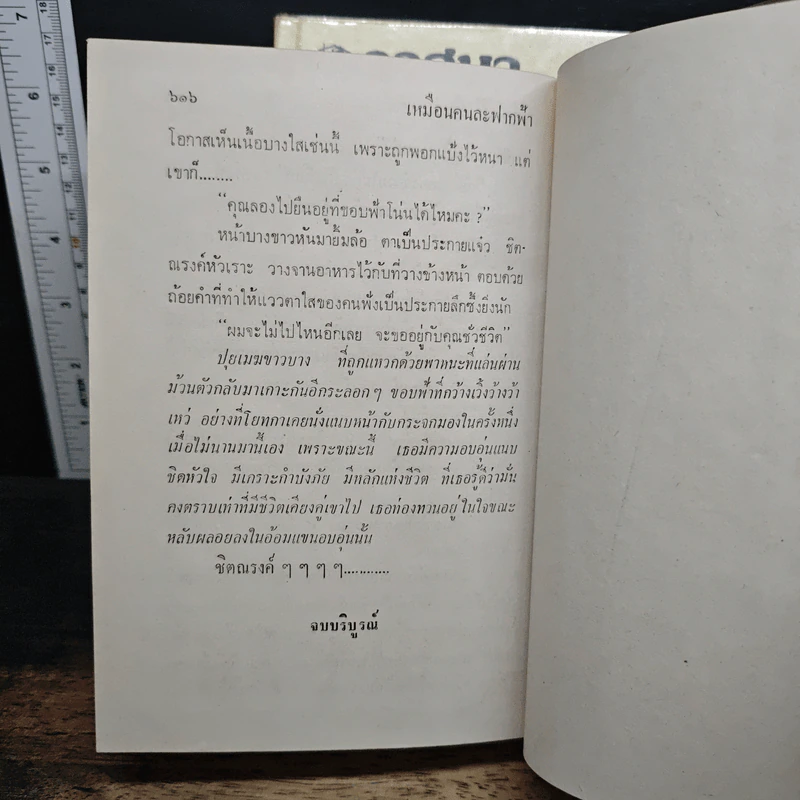 ๖๑๖
เหมือนคนละฟากฟ้า
โอกาสเห็นเนื้อบางใสเช่นนี้ เพราะถูกพอกแป้งไว้หนา แต่
เขาก็........
“คุณลองไปยืนอยู่ที่ขอบฟ้าโน่นได้ไหมคะ ?”
หน้าบางขาวหันมายิ้มล้อ ตาเป็นประกายแจ๋ว ชิต-
ณรงค์หัวเราะ วางจานอาหารไว้กับที่วางข้างหน้า ตอบด้วย
ถ้อยคำที่ทำให้แววตาใสของคนฟังเป็นประกายลึกซึ้งยิ่งนัก
“ผมจะไม่ไปไหนอีกเลย จะขออยู่กับคุณชั่วชีวิต”
ปุยเมฆขาวบาง ที่ถูกแหวกด้วยพาหนะที่แล่นผ่าน
ม้วนตัวกลับมาเกาะกันอีกระลอกๆ ขอบฟ้าที่กว้างเวิ้งว้างว้า
เหว่ อย่างที่โยทกาเคยนั่งแนบหน้ากับกระจกมองในครั้งหนึ่ง
เมื่อไม่นานมานี้เอง เพราะขณะนี้ เธอมีความอบอุ่นแนบ
ชิดหัวใจ มีเกราะกำบังภัย มีหลักแห่งชีวิต ที่เธอรู้ดีว่ามั่น
คงตราบเท่าที่มีชีวิตเคียงคู่เขาไป เธอท่องทวนอยู่ในใจขณะ
หลับผลอยลงในอ้อมแขนอบอุ่นนั้น
ชิตณรงค์ ๆ ๆ ๆ ๆ............
จบบริบูรณ์
7
6
5
4
3
2
1